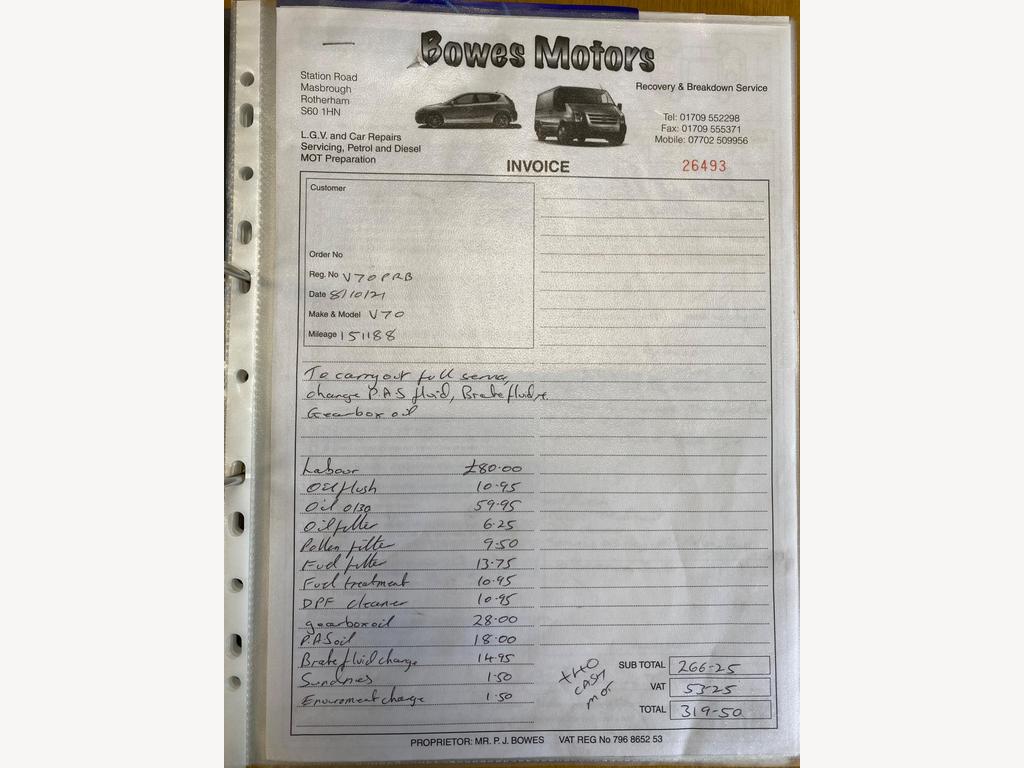 Bowes Motors
Station Road
Masbrough
Rotherham
S60 1HN
Recovery & Breakdown Service
Tel: 01709 552298
Fax: 01709 555371
Mobile: 07702 509956
L.G.V. and Car Repairs
Servicing, Petrol and Diesel
MOT Preparation
INVOICE
26493
Customer
Order No
Reg. No V70PRB
Date 8/10/21
Make & Model V70
Mileage 151188
To carry out full
change P.A.S fluid, Brake fluid
Gearbox oil
Labour £80.00
Oil flush 10.95
Oil 0/30 59.95
Oil filter 6.25
Pollen filter 9.50
Fuel filter 13.75
Fuel treatment 10.95
DPF cleaner 10.95
gearbox oil 28.00
P.A.S oil 18.00
Brake fluid change 14.95
Sundries 1.50
Enviroment charge 1.50
CASH
MOT
SUB TOTAL 266-25
VAT 53-25
TOTAL 319-50
PROPRIETOR: MR. P. J. BOWES VAT REG No 796 8652 53